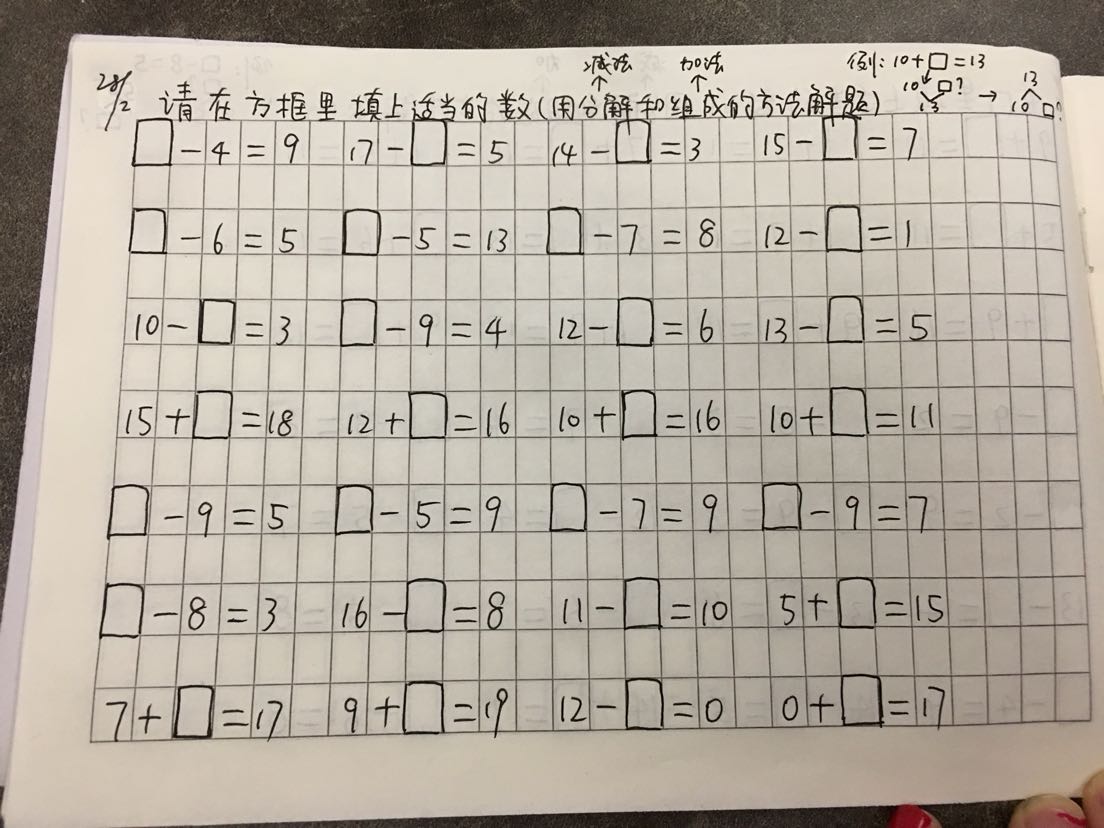 减法 加法 例: 10+□=13
28/2 请在方框里填上适当的数(用分解和组成的方法解题)
10 □? → 13
13 10 □?
□-4=9 17-□=5 14-□=3 15-□=7
□-6=5 □-5=13 □-7=8 12-□=1
10-□=3 □-9=4 12-□=6 13-□=5
15+□=18 12+□=16 10+□=16 10+□=11
□-9=5 □-5=9 □-7=9 □-9=7
□-8=3 16-□=8 11-□=10 5+□=15
7+□=17 9+□=19 12-□=0 0+□=17